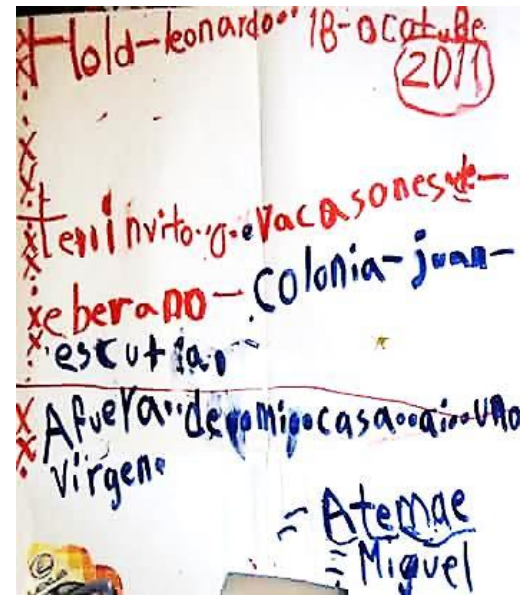 Hold-leonardo·· 18-ocatuBe
2011
te··invito··a··vacasones-de-
eberano-colonia-juan-
escutia·
Afuera··de··mi··casa··ai··uno
virgen·
=Atemae
=Miguel